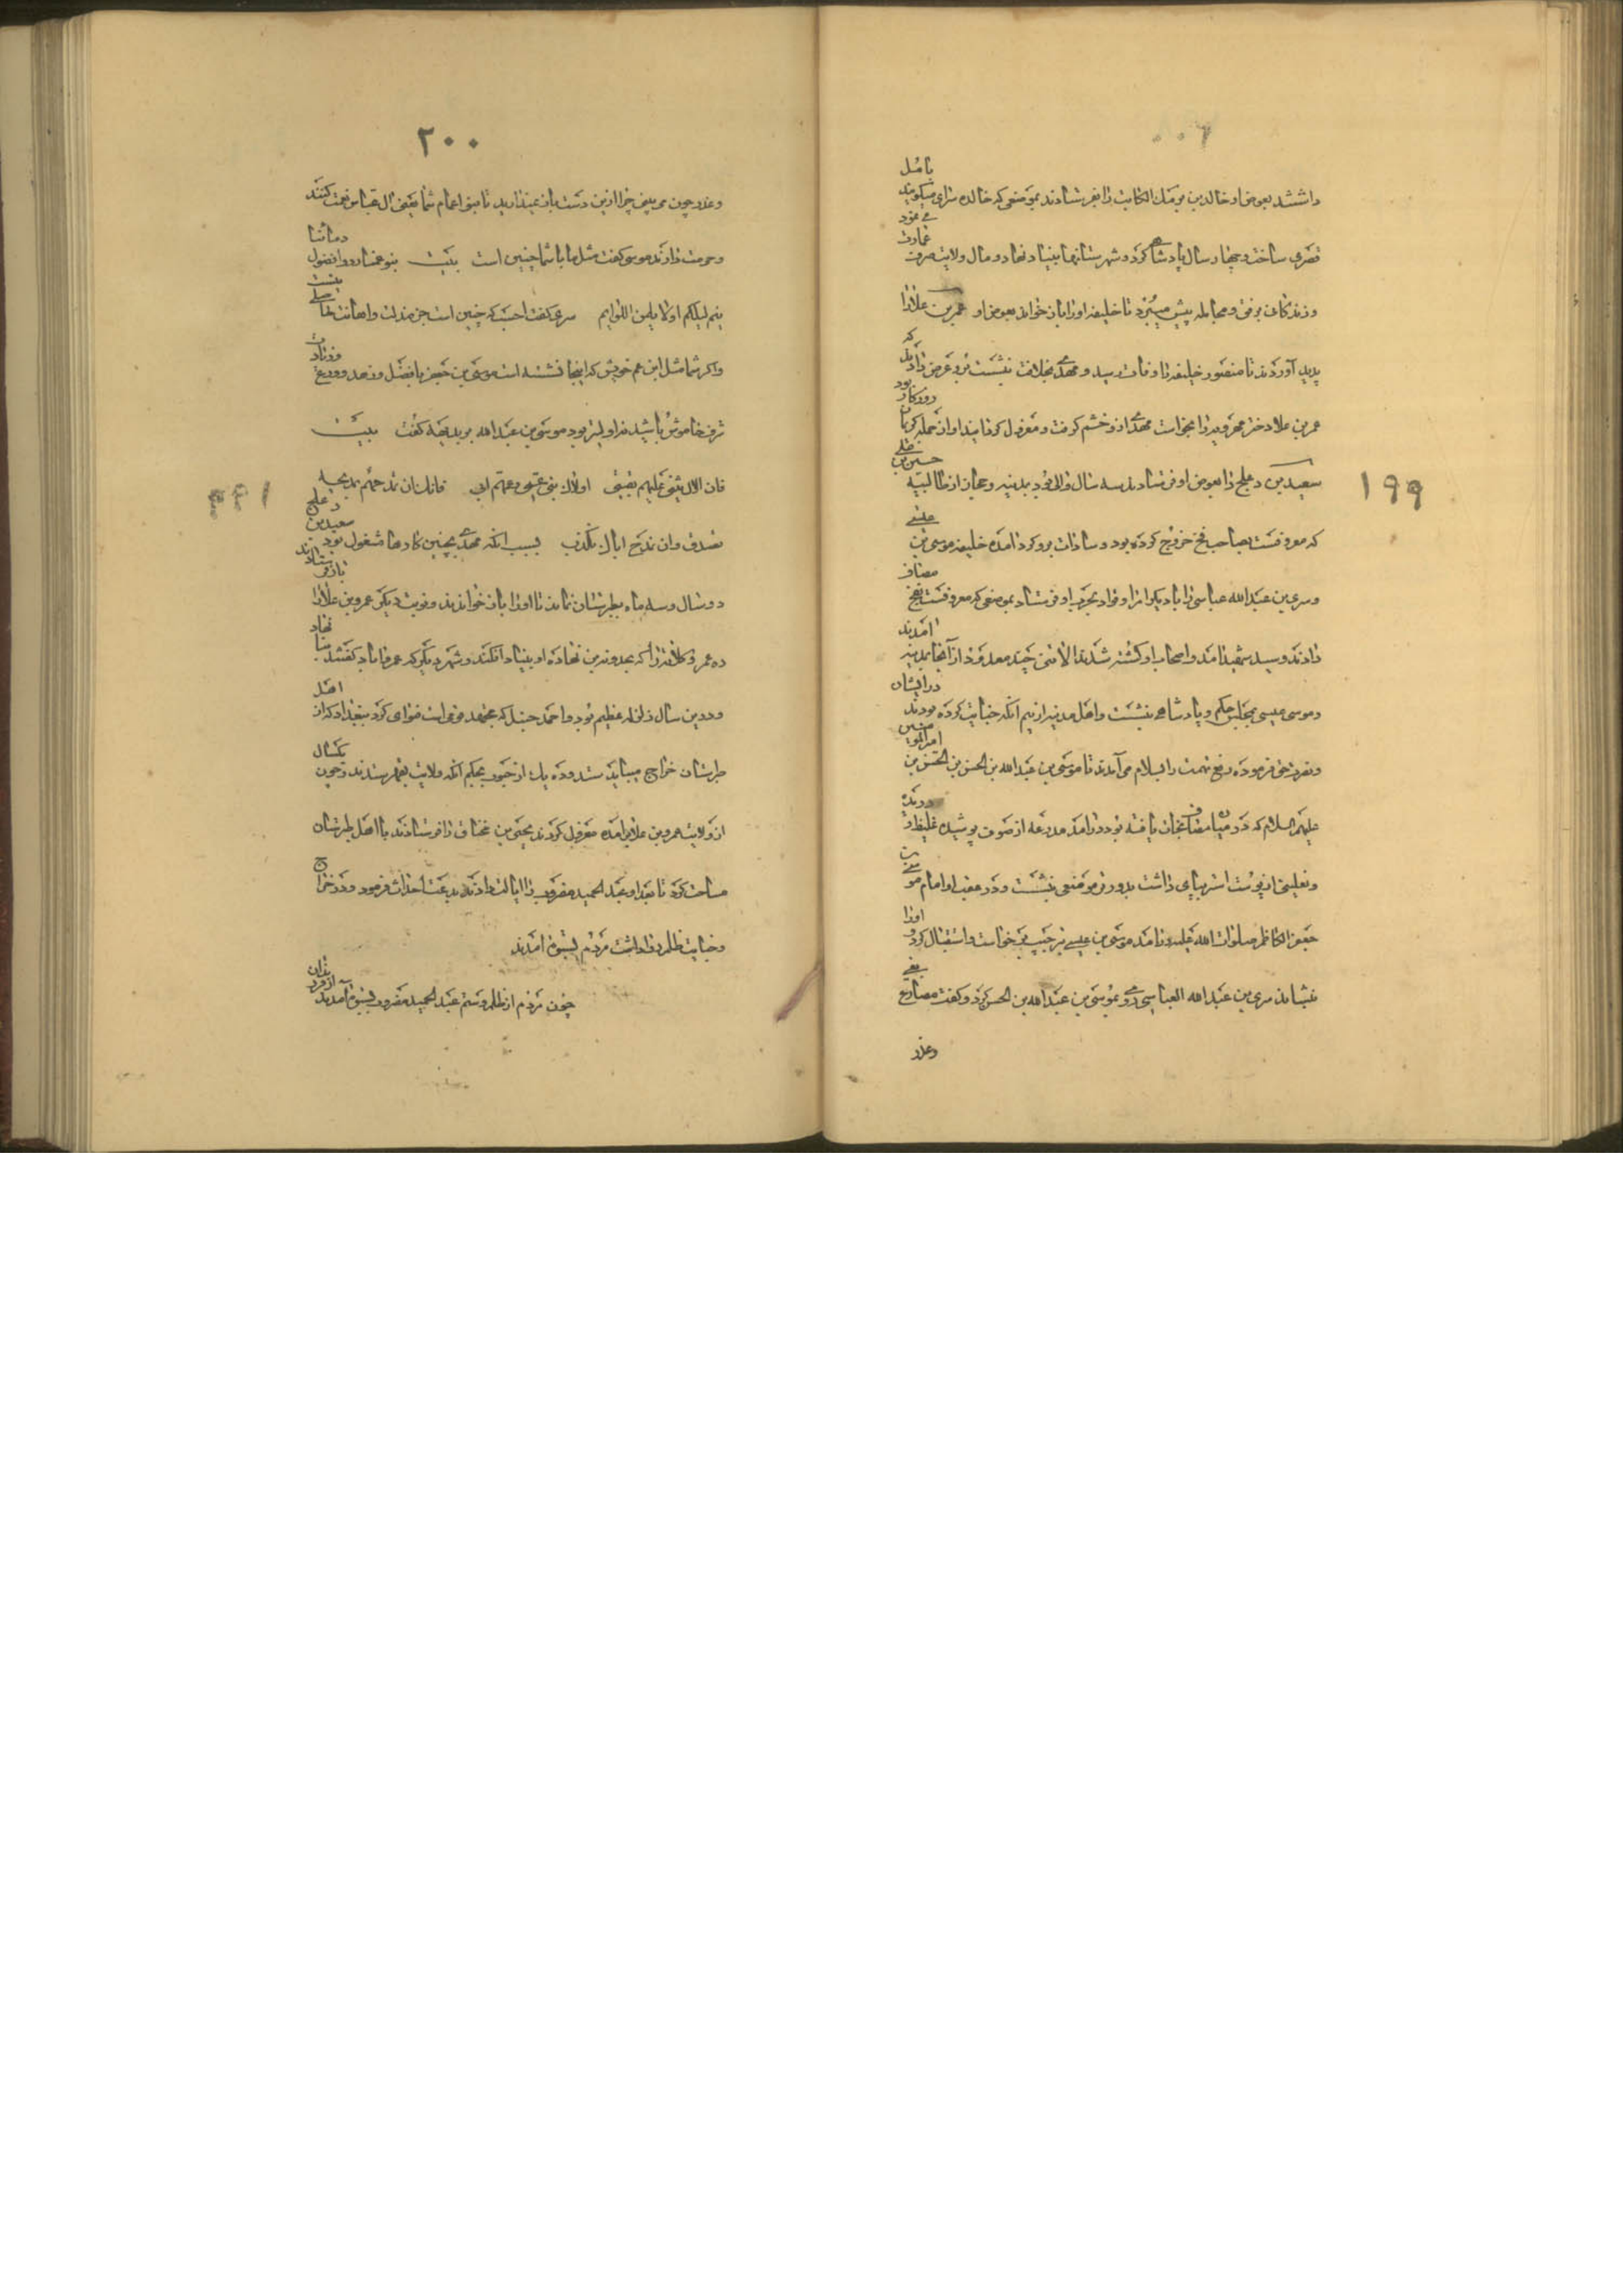 داشتند بعوض او خالد بن برمك الكاتب را بفرستادند بموضعی كه خالده سرای میكویند بآمل
قصری ساخت و چهار سال پادشاهی كرد و شهرستانها بنیاد نهاد و مال ولایت صرف عمارت می‌نمود
و زندكانی برفق و مجامله پیش میبرد تا خلیفه اورا باز خواند بعوض او عمر بن علا را
پدید آوردند تا منصور خلیفه را وفات رسید و مهدی بخلافت بنشست برو عرض دادند كه
عمر بن علا دختر را بخواست مهدی ازو خشم كرفت و معزول كردانید و آن حمله
سعید بن دعلج را بعوض او فرستادند سه سال والی بود بمدینه و حجاز از طالبیه حسین بن علی
كه معروفست بصاحب فخ خروج كرده بود و سادات برو كرد آمده خلیفه موسی بن عیسی
و سری بن عبدالله عباسی را با دیكر امرا و قواد بحرب او فرستاد بموضعی كه معروفست بفخ مصاف
دادند و سید شهید آمد و اصحاب او كشته شدند الا تنی چند معدود از آنجا بمدینه آمدند
و موسی عیسی بمجلس حكم و پادشاهی بنشست و اهل مدینه از بیم آنكه خیانت كرده بودند در ایشان
و نصرت حق فرموده دفع تهمت را بسلام می‌آمدند تا موسی بن عبدالله بن الحسن بن الحسن بن امیر المومنین
علیهم السلام كه در میان مصاف نجات یافته بود در آمد مدرعه از صوف پوشیده غلیظ و دریده
و نعلینی از پوست اشتر بپای داشت بدور تر موضعی بنشست و در عقب او امام موسی بن
جعفر الكاظم صلوات الله علیه در آمد موسی بن عیسی بترحیب برخواست و استقبال كرد و اورا
بنشاند سری بن عبدالله العباسی روی بموسی بن عبدالله بن الحسن كرد و كفت مصارع بغی
وغدر
۱۹۹
۲۰۰
وغدر چون می بینی چرا ازین دست باز نمیدارید تا بنی اعمام شما یعنی آل عباس نعمت كنند
و حرمت دارند موسی كفت مثل ما با شما چنین است بیت بنی عمنا ردوا فضول دمائنا
ینم لیلكم اولا یلمن اللوایم سری كفت احسب كه چنین است جز مذلت و اهانت
و اكر شما مثل ابن عم خویش كه اینجا نشسته است موسی بن جعفر با فضل و زهد و ورع
شرف خاموش باشید سزاوارتر بود موسی بن عبدالله بر بدیهه كفت بیت
فان الالی تثنی علیهم تعیبنی اولاك بنی عمی و عمهم ابی فانك ان تمدحهم بمدیحه
تصدق و ان تمدح اباك تكذب بسبب آنكه مهدی بچنین كارها مشغول بود سعید بن دعلج
دو سال و سه ماه بطبرستان بماند تا اورا باز خواندند و نوبت دیكر عمرو بن علا را باز فرستادند
ده عمر و كلاته را كه بحدود من نهاده او بنیاد افكند و شهر دیكر كه عمرآباد كفتند بنیاد نهاد
و درین سال زلزله عظیم بود و احمد حنبل كه مجتهد قومی است فتوای كرد ببغداد كه از اهل
طبرستان خراج میباید ستد و ده یك از حبوب بحكم آنكه ولایت بقهر ستدند و چون یكسال
از ولایت عمرو بن علا بر آمده معزول كردند یحیی بن مخناق را فرستادند با اهل طبرستان
مسامحت كرد تا بعد او عبد الحمید مضروب را ایالت دادند بدعت احداث فرمود و در خراج
و جنایت ظلم روا داشت مردم بستوه آمدند
چون مردم از ظلم و ستم عبد الحمید مضروب بستوه آمدند